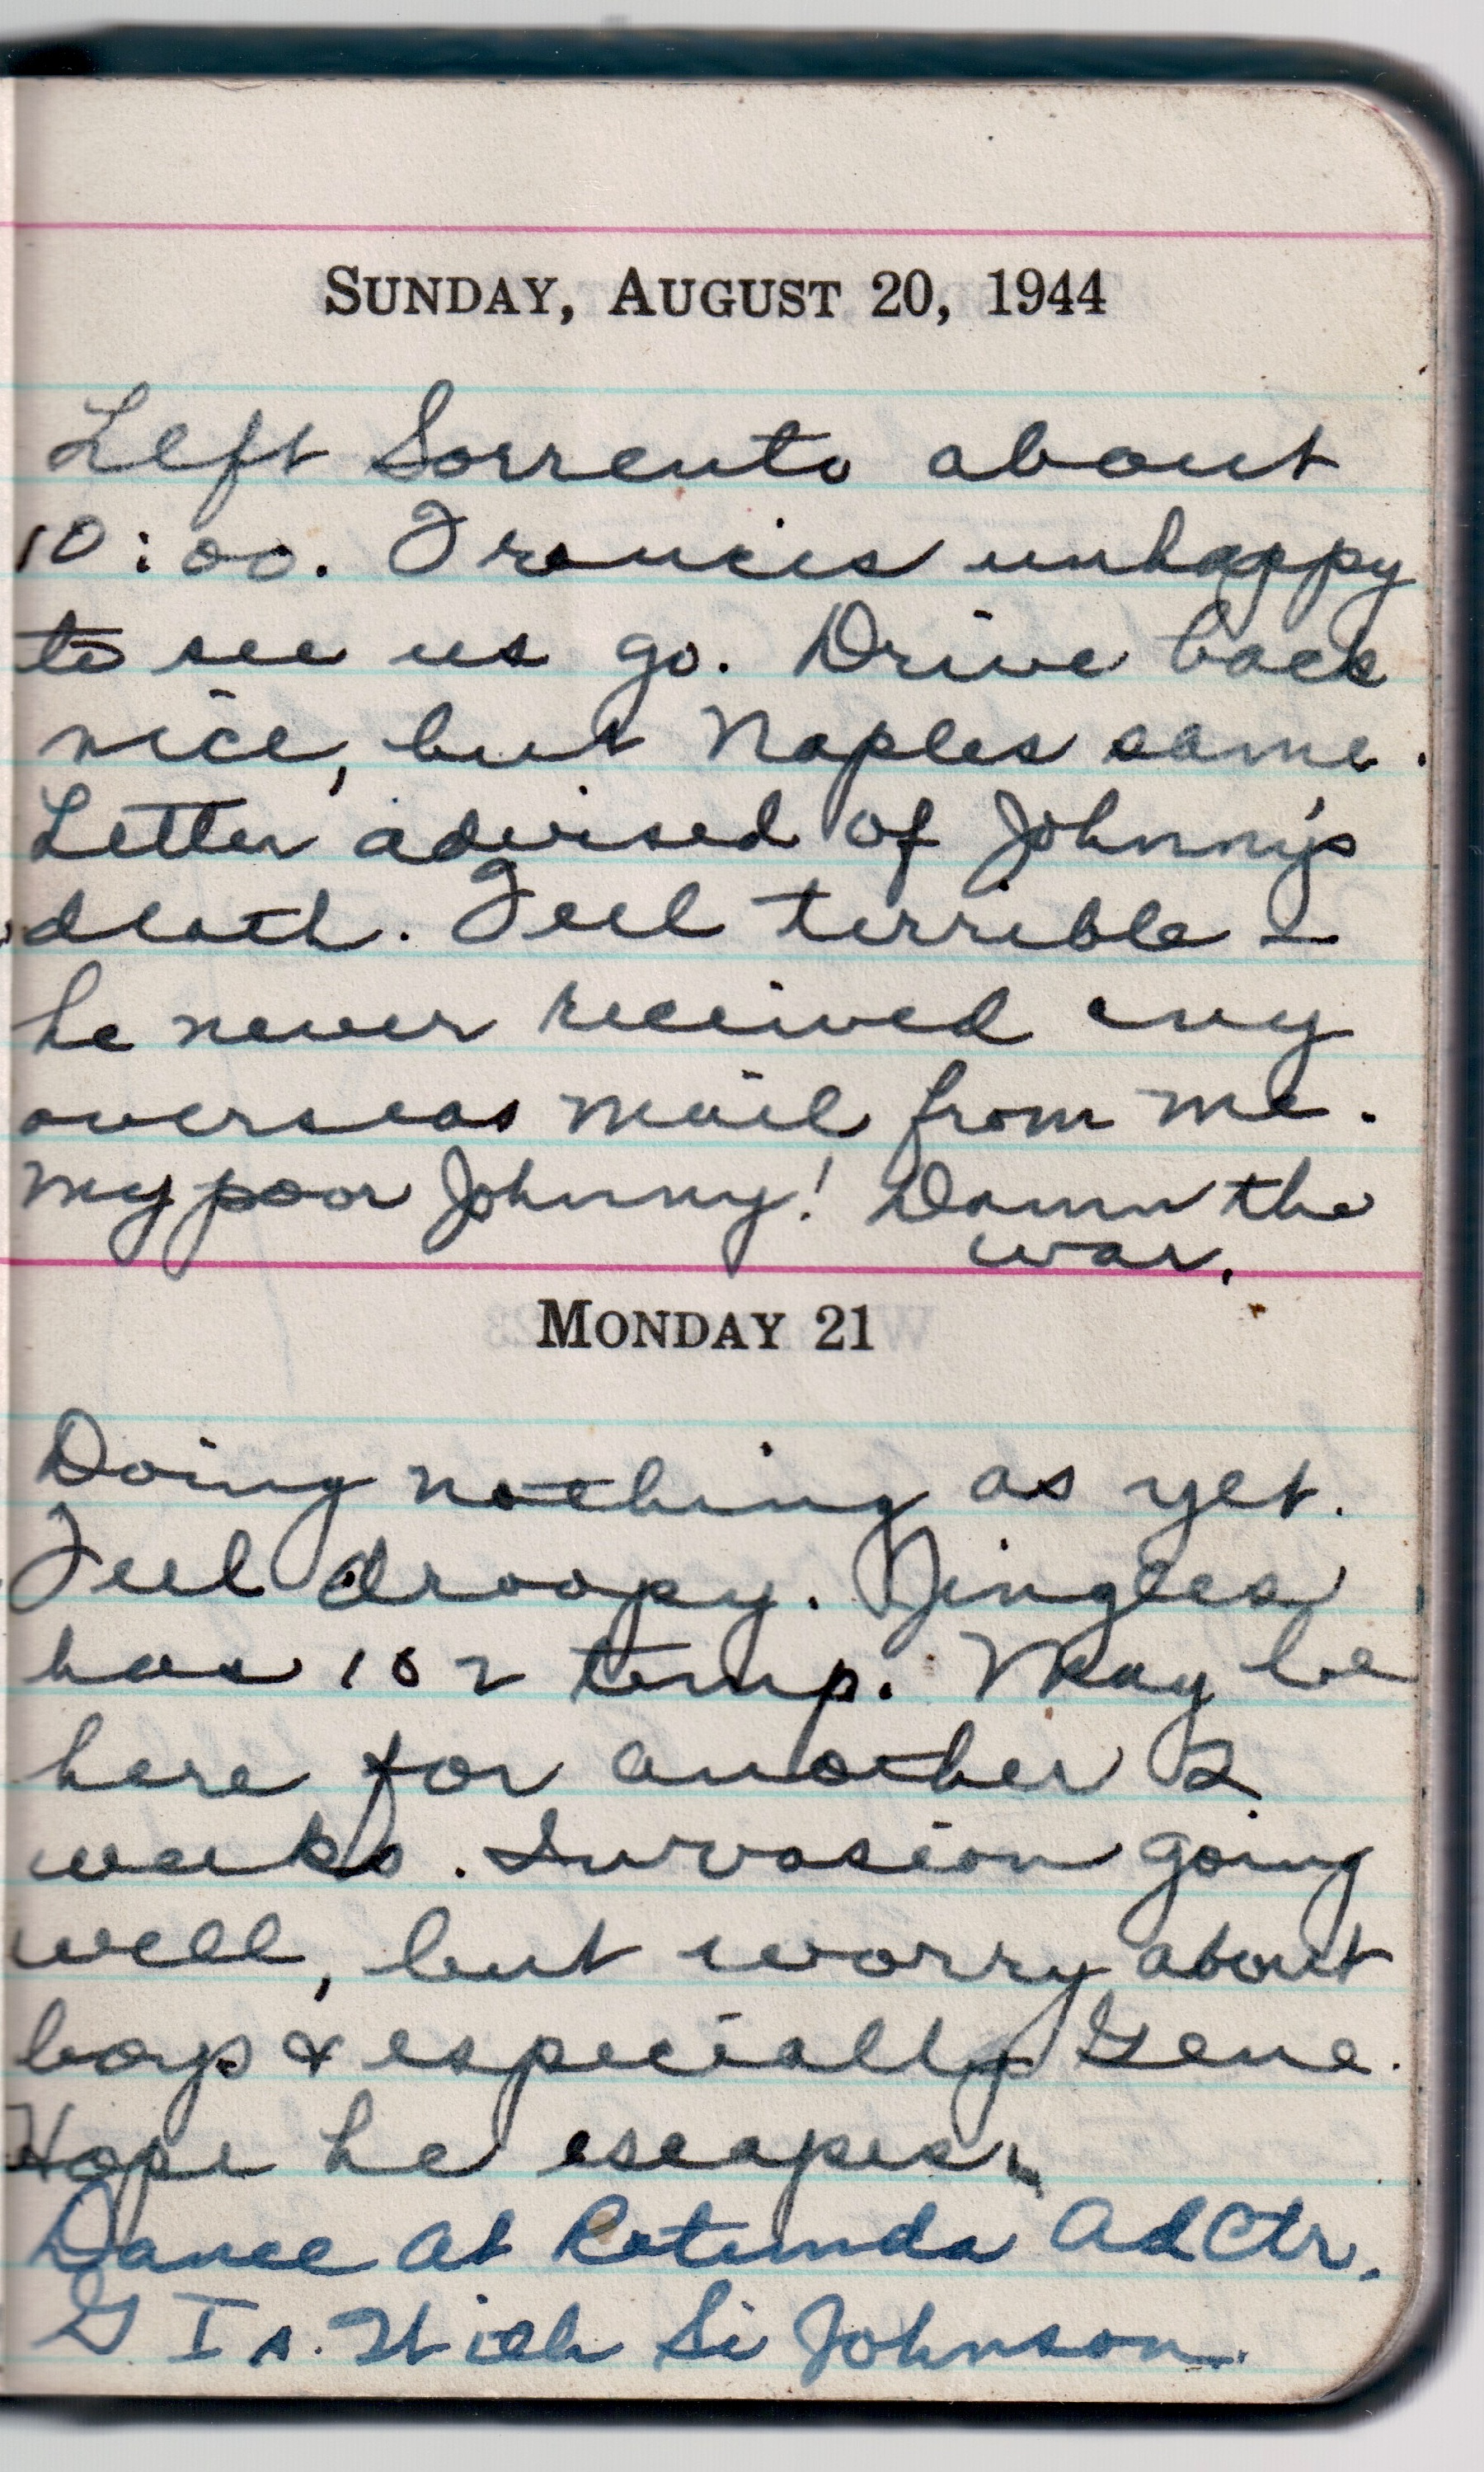 SUNDAY, AUGUST 20, 1944
Left Sorrento about
10:00. Francis unhappy
to see us go. Drive back
nice, but Naples same.
Letter advised of Johnny's
death. Feel terrible –
he never received any
overseas mail from me.
My poor Johnny! Damn the
war.
MONDAY 21
Doing nothing as yet.
Feel droopy. Jingles
has 102 temp. May be
here for another 2
weeks. Invasion going
well, but worry about
boys & especially Gene.
Hope he escapes.
Dance at Rotunda Ad Ctr.
G Is. With Si Johnson.